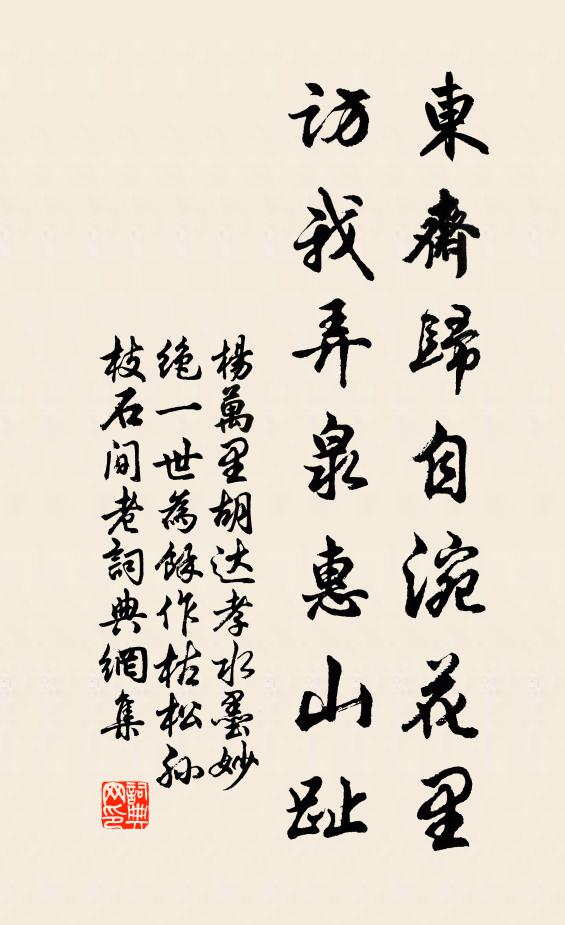 東齋歸自涴花里
訪我弄泉惠山趾
楊萬里胡达孝水墨妙
絶一世為餘作枯松孙
枝石間老詞典網集
詞典
网印